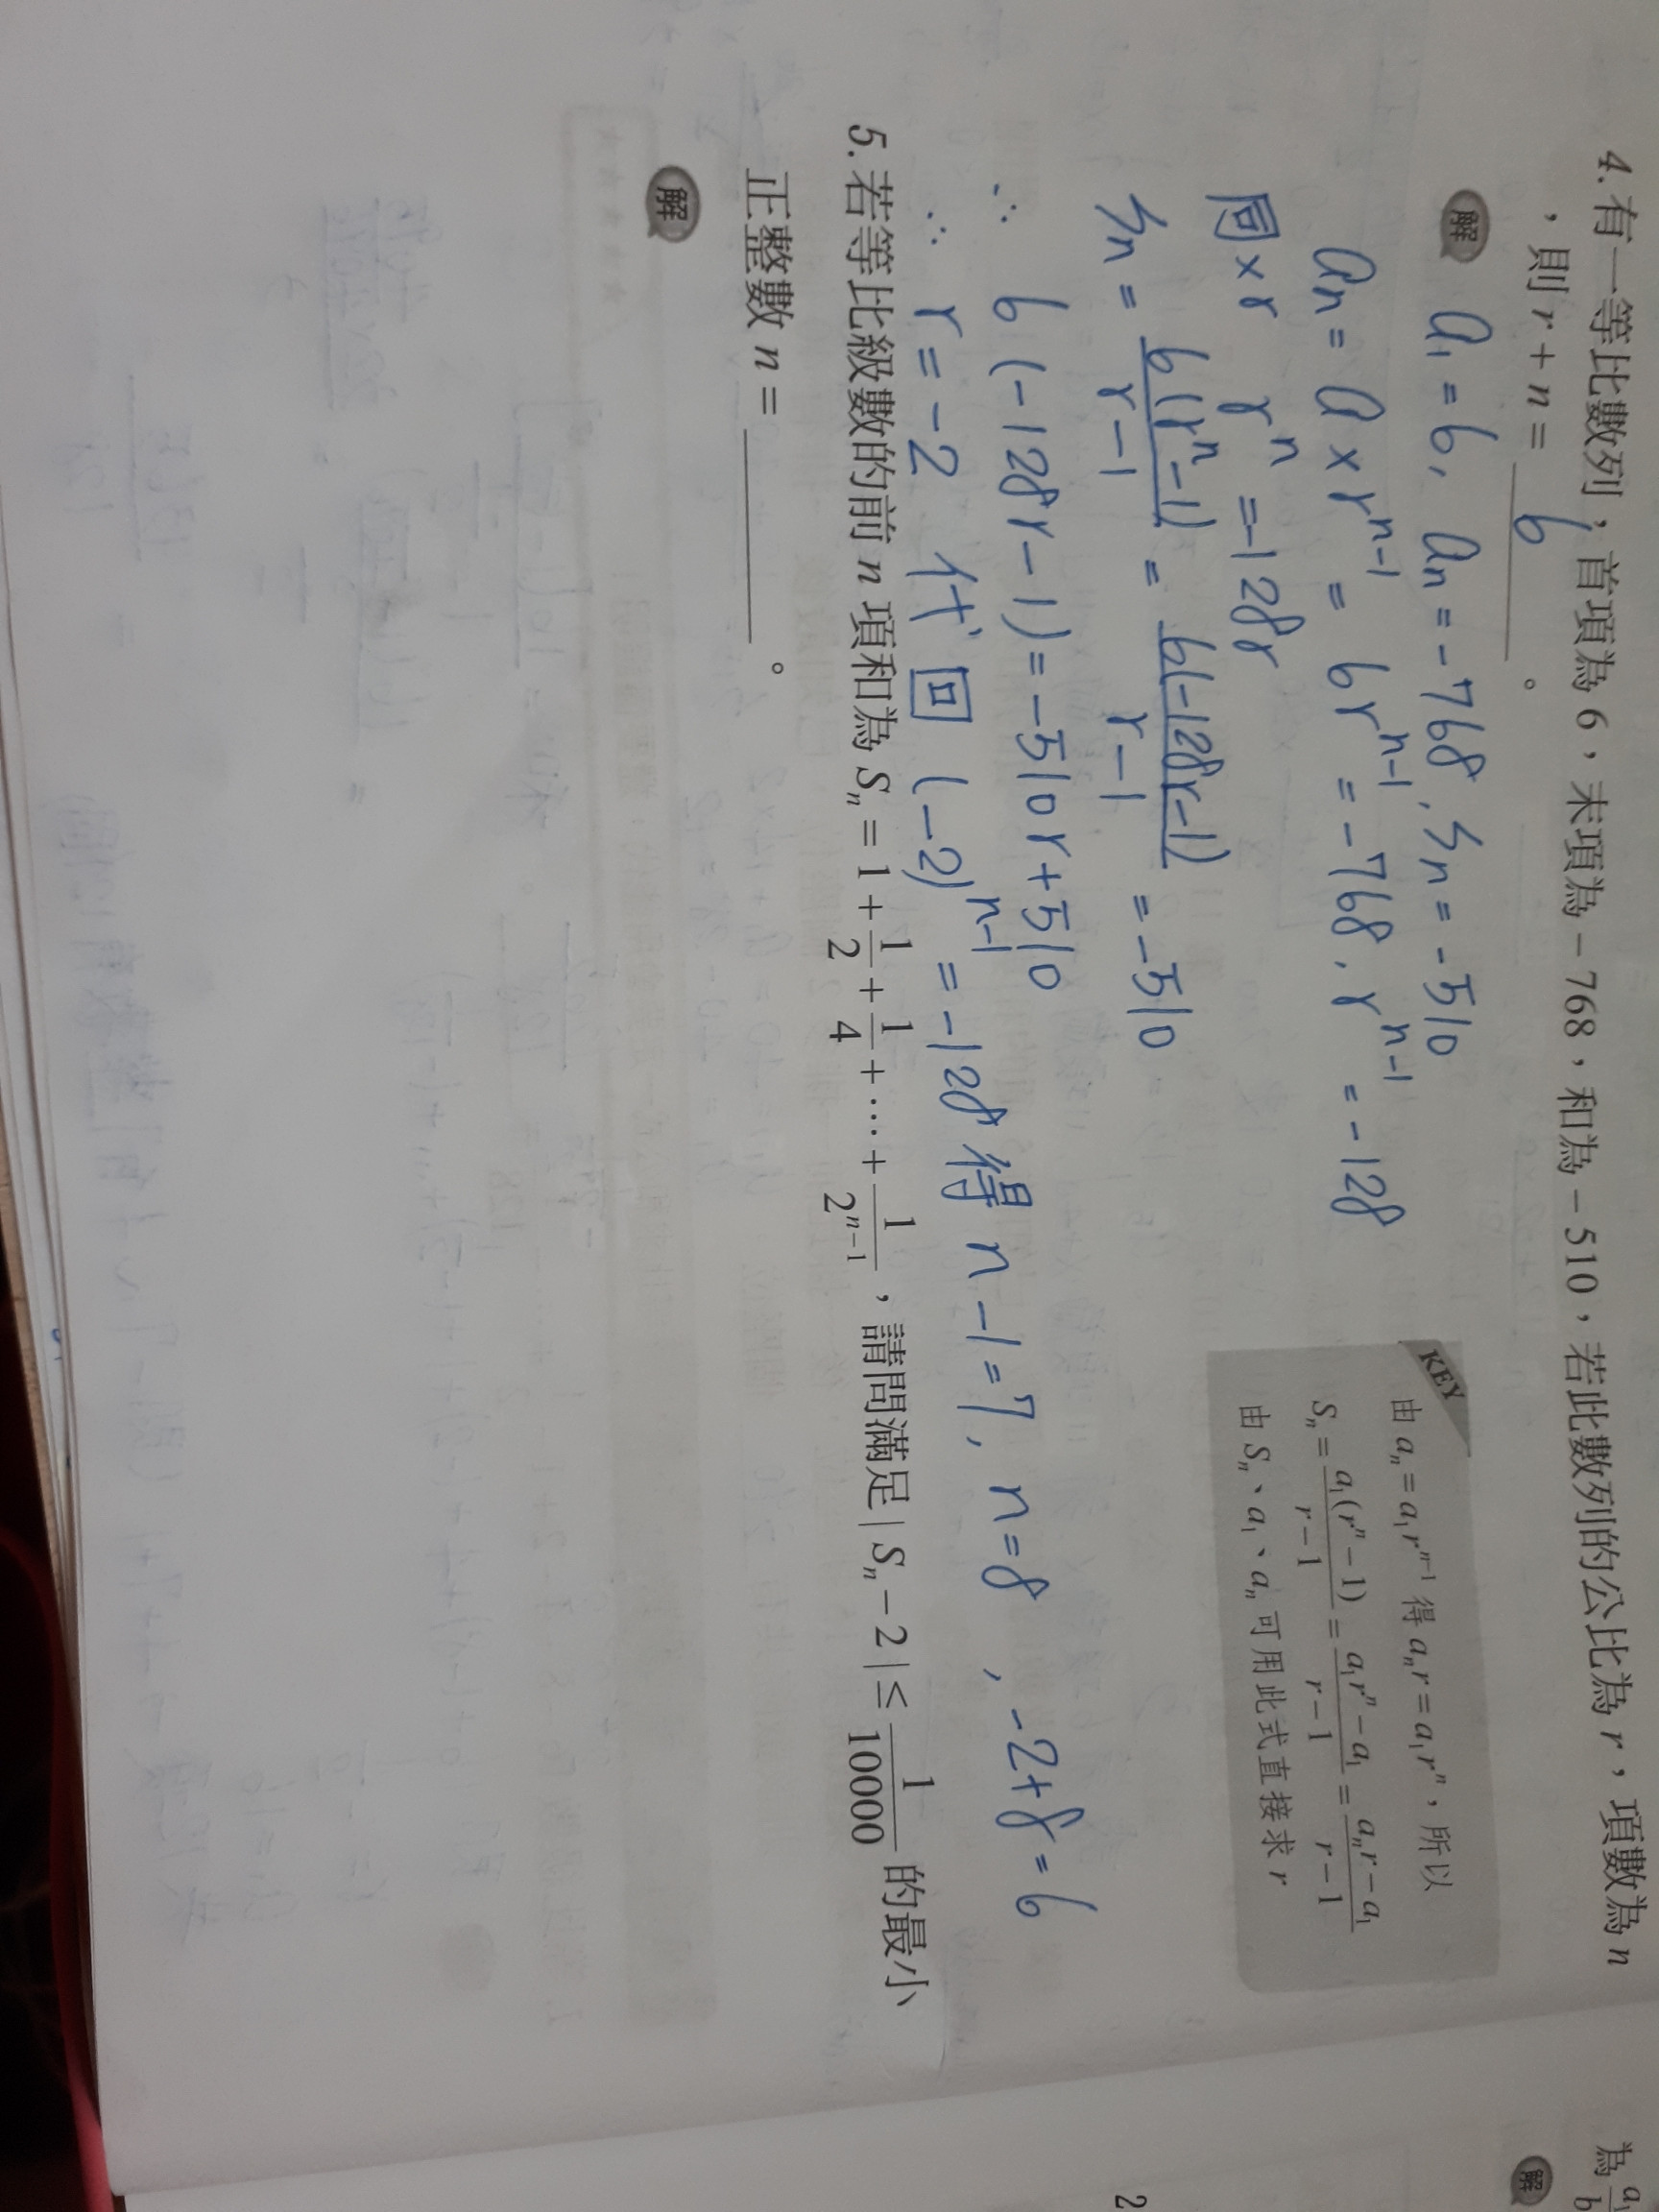 4. 有一等比數列，首項為 6，末項為 −768，和為 −510，若此數列的公比為 r，項數為 n
，則 r + n = 6 。
解 a₁ = 6, aₙ = -768, Sₙ = -510
aₙ = a × rⁿ⁻¹ = 6rⁿ⁻¹ = -768, rⁿ⁻¹ = -128
同×r rⁿ = -128r
Sₙ = 6(rⁿ-1)/(r-1) = 6(-128r-1)/(r-1) = -510
∴ 6(-128r-1) = -510r+510
∴ r = -2 代回 (-2)ⁿ⁻¹ = -128 得 n-1=7, n=8, -2+8=6
KEY
由 aₙ = a₁rⁿ⁻¹ 得 aₙr = a₁rⁿ，所以
Sₙ = a₁(rⁿ−1)/(r−1) = (a₁rⁿ−a₁)/(r−1) = (aₙr−a₁)/(r−1)
由 Sₙ、a₁、aₙ 可用此式直接求 r
5. 若等比級數的前 n 項和為 Sₙ = 1 + 1/2 + 1/4 + ⋯ + 1/2ⁿ⁻¹，請問滿足 | Sₙ − 2 | ≤ 1/10000 的最小
正整數 n = ＿＿＿。
解
為
解
2